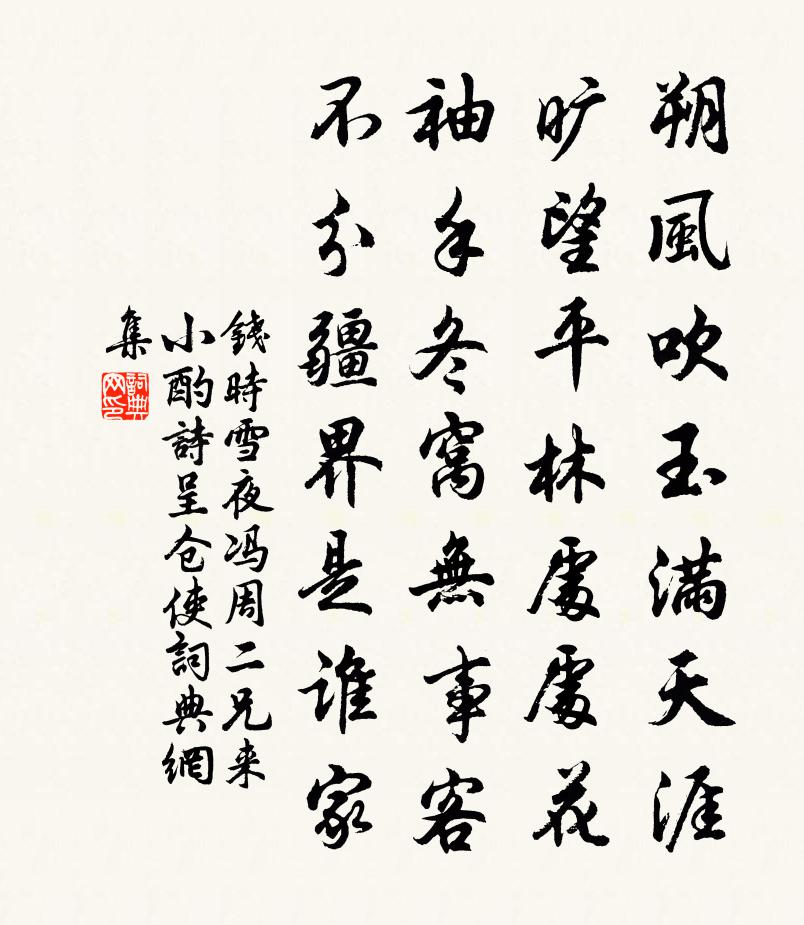 朔風吹玉滿天涯
旷望平林處處花
袖手冬窩無事客
不分疆界是誰家
錢時雪夜冯周二兄来
小酌詩呈仓使詞典網
集
詞典
网印